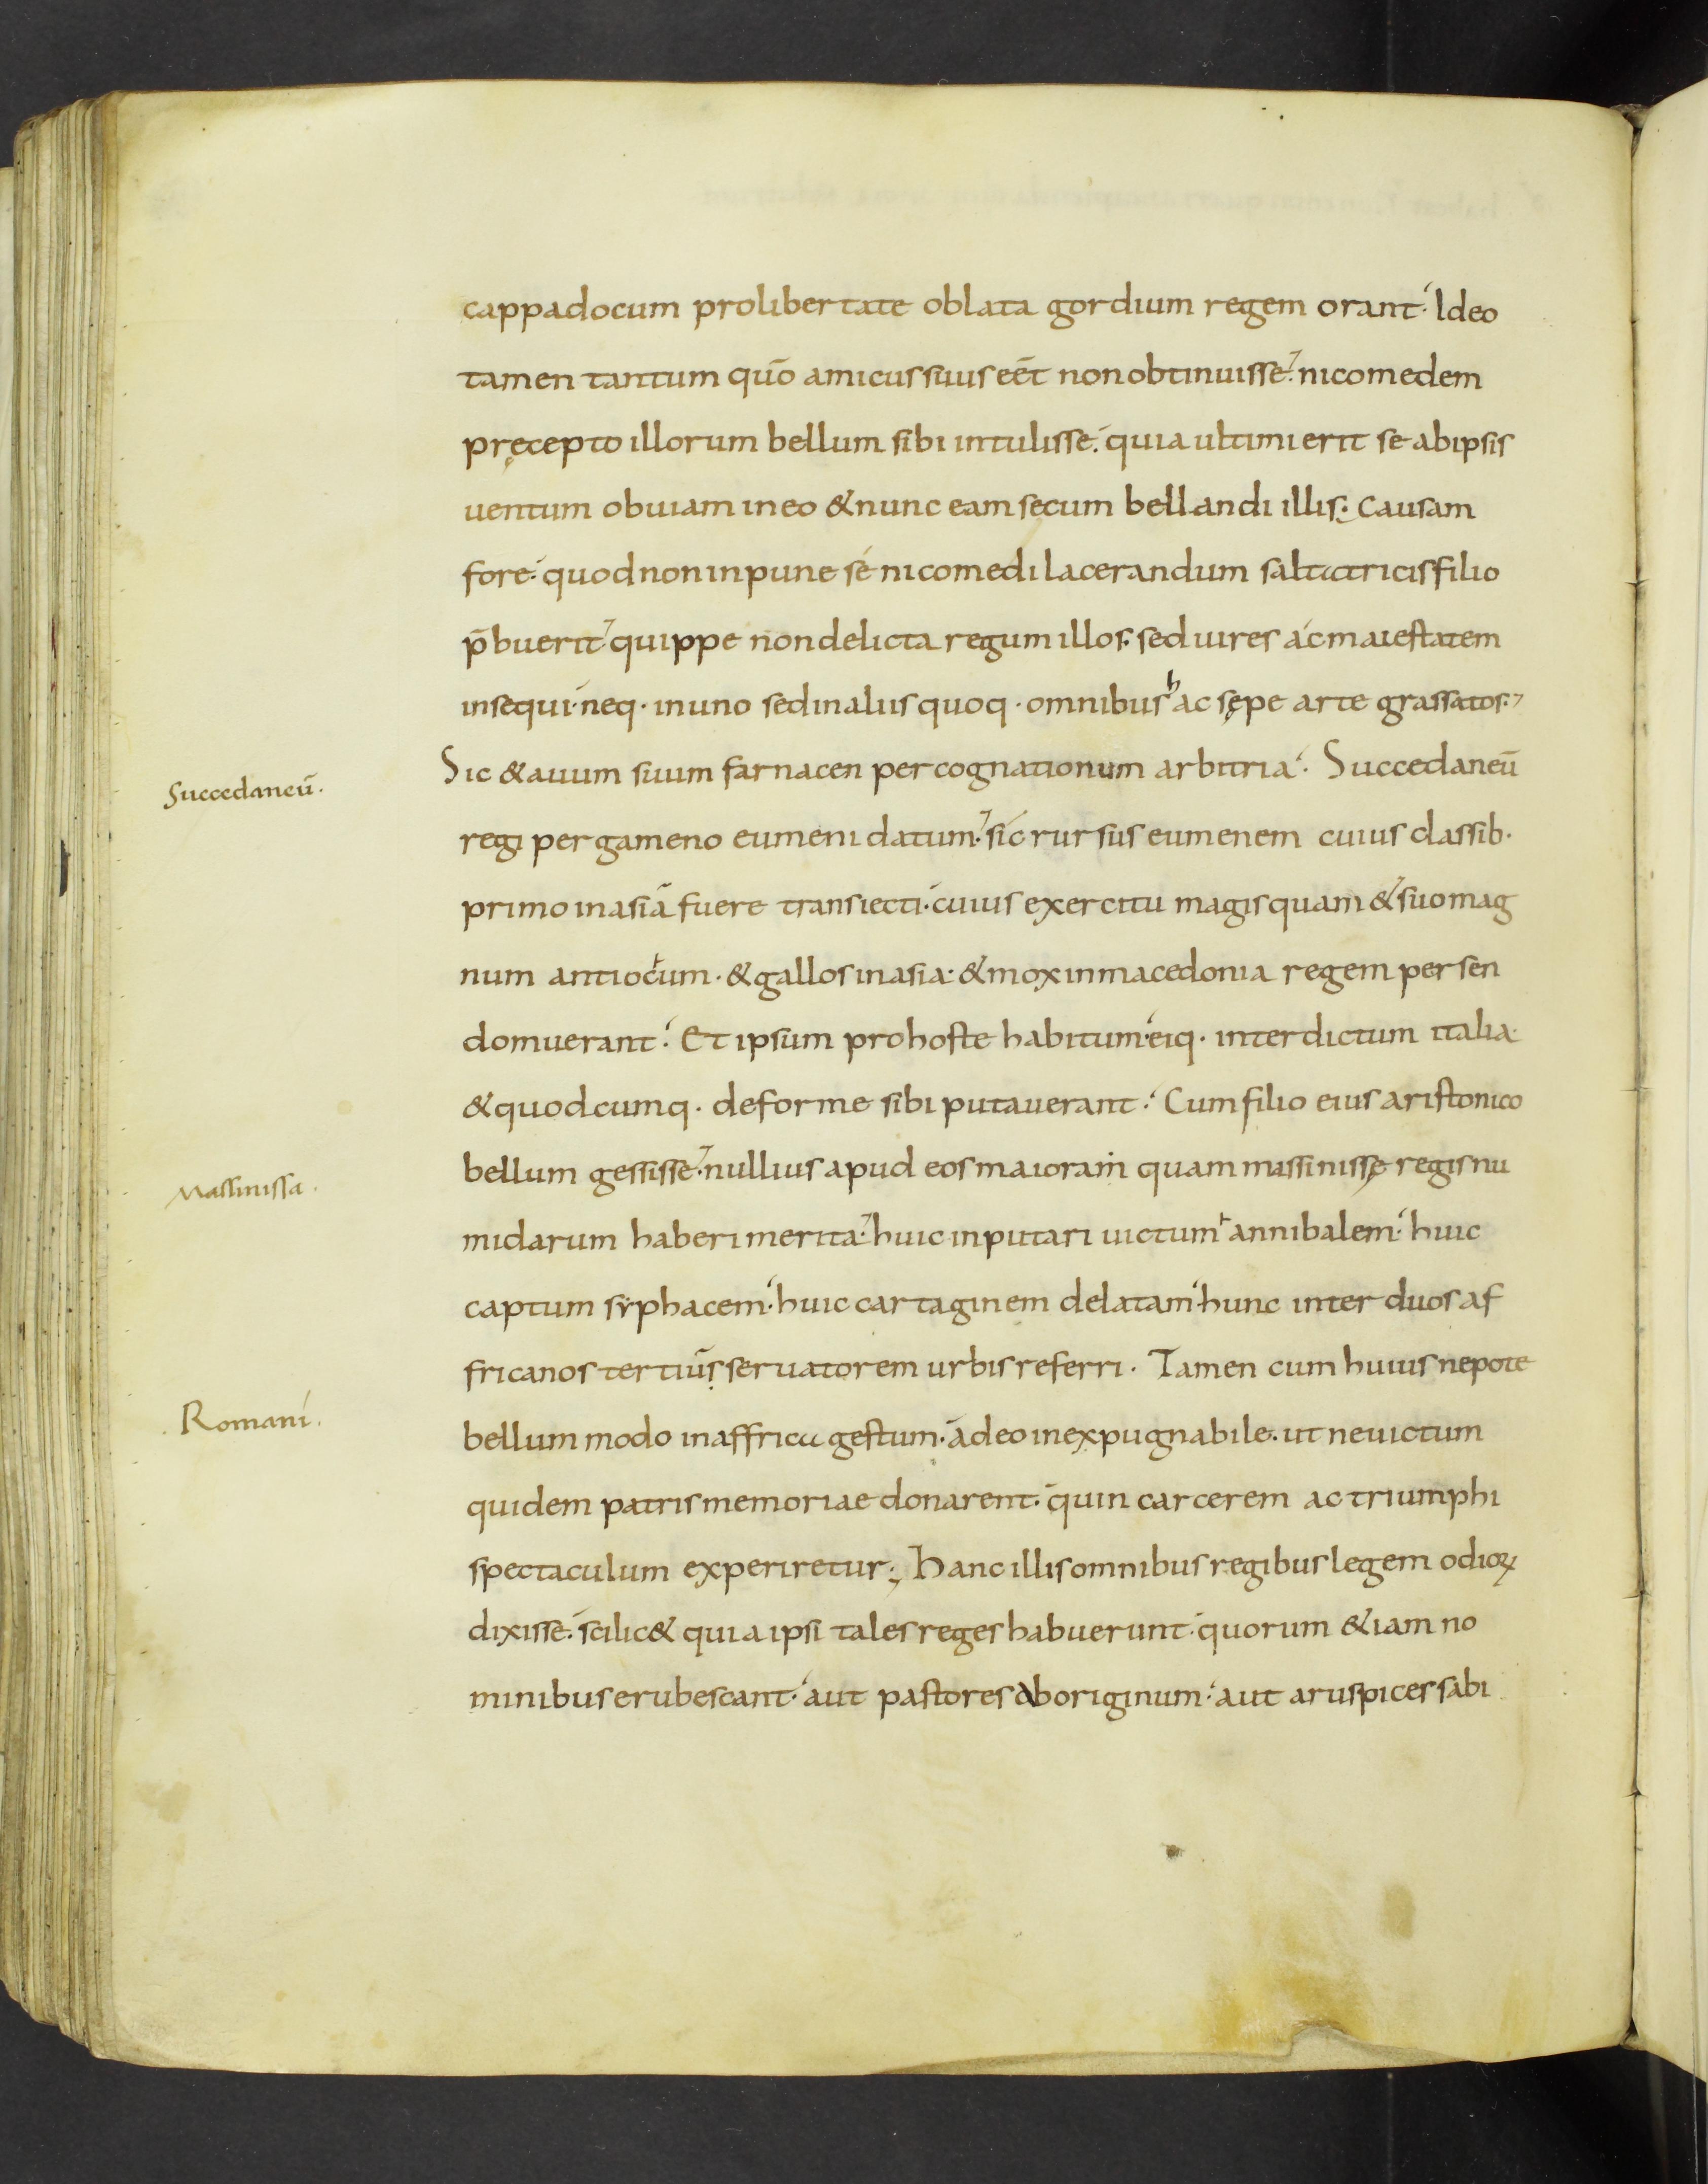 cappadocum prolibertate oblata gordium regem orant. Ideo
tamen tantum quō amicus suus eēt non obtinuisse. nicomedem
pręcepto illorum bellum sibi intulisse. quia ultimi erit se abipsis
uentum obuiam in eo & nunc eam secum bellandi illis. Causam
fore. quod non inpune se nicomedi lacerandum saltatricis filio
p̄buerit. quippe non delicta regum illos. sed uires ac maiestatem
insequi. neq. in uno sed in aliis quoq. omnibus h ac sępe arte grassatos.
Sic & auum suum farnacen per cognationum arbitria. Succedaneū
Succedaneū.
regi pergameno eumeni datum. sic rursus eumenem cuius classib.
primo in asiā fuere transiecti. cuius exercitu magis quam & suo mag
num antiocum. & gallos in asia. & mox in macedonia regem persen
domuerant. Et ipsum pro hoste habitum. eiq. interdictum italia
& quodcumq. deforme sibi putauerant. Cum filio eius aristonico
bellum gessisse. nullius apud eos maioram quam massinissę regis nu
Massinissa.
midarum haberi merita. huic inputari uictum annibalem. huic
captum syphacem. huic cartaginem delatam. hunc inter duos af
fricanos tertiūs seruatorem urbis referri. Tamen cum huius nepote
Romani.
bellum modo in affrica gestum. adeo inexpugnabile. ut ne uictum
quidem patris memoriae donarent. quin carcerem ac triumphi
spectaculum experiretur; Hanc illis omnibus regibus legem odioꝝ
dixisse. scilic& quia ipsi tales reges habuerunt. quorum &iam no
minibus erubescant. aut pastores aboriginum. aut aruspices sabi